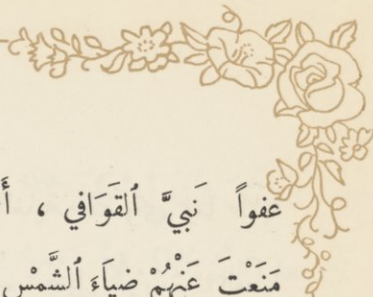 عفواً نَبيَّ ٱلقَوَافي ،
مَنَعْتَ عَنْهُمْ ضياءَ ٱلشَّمْس